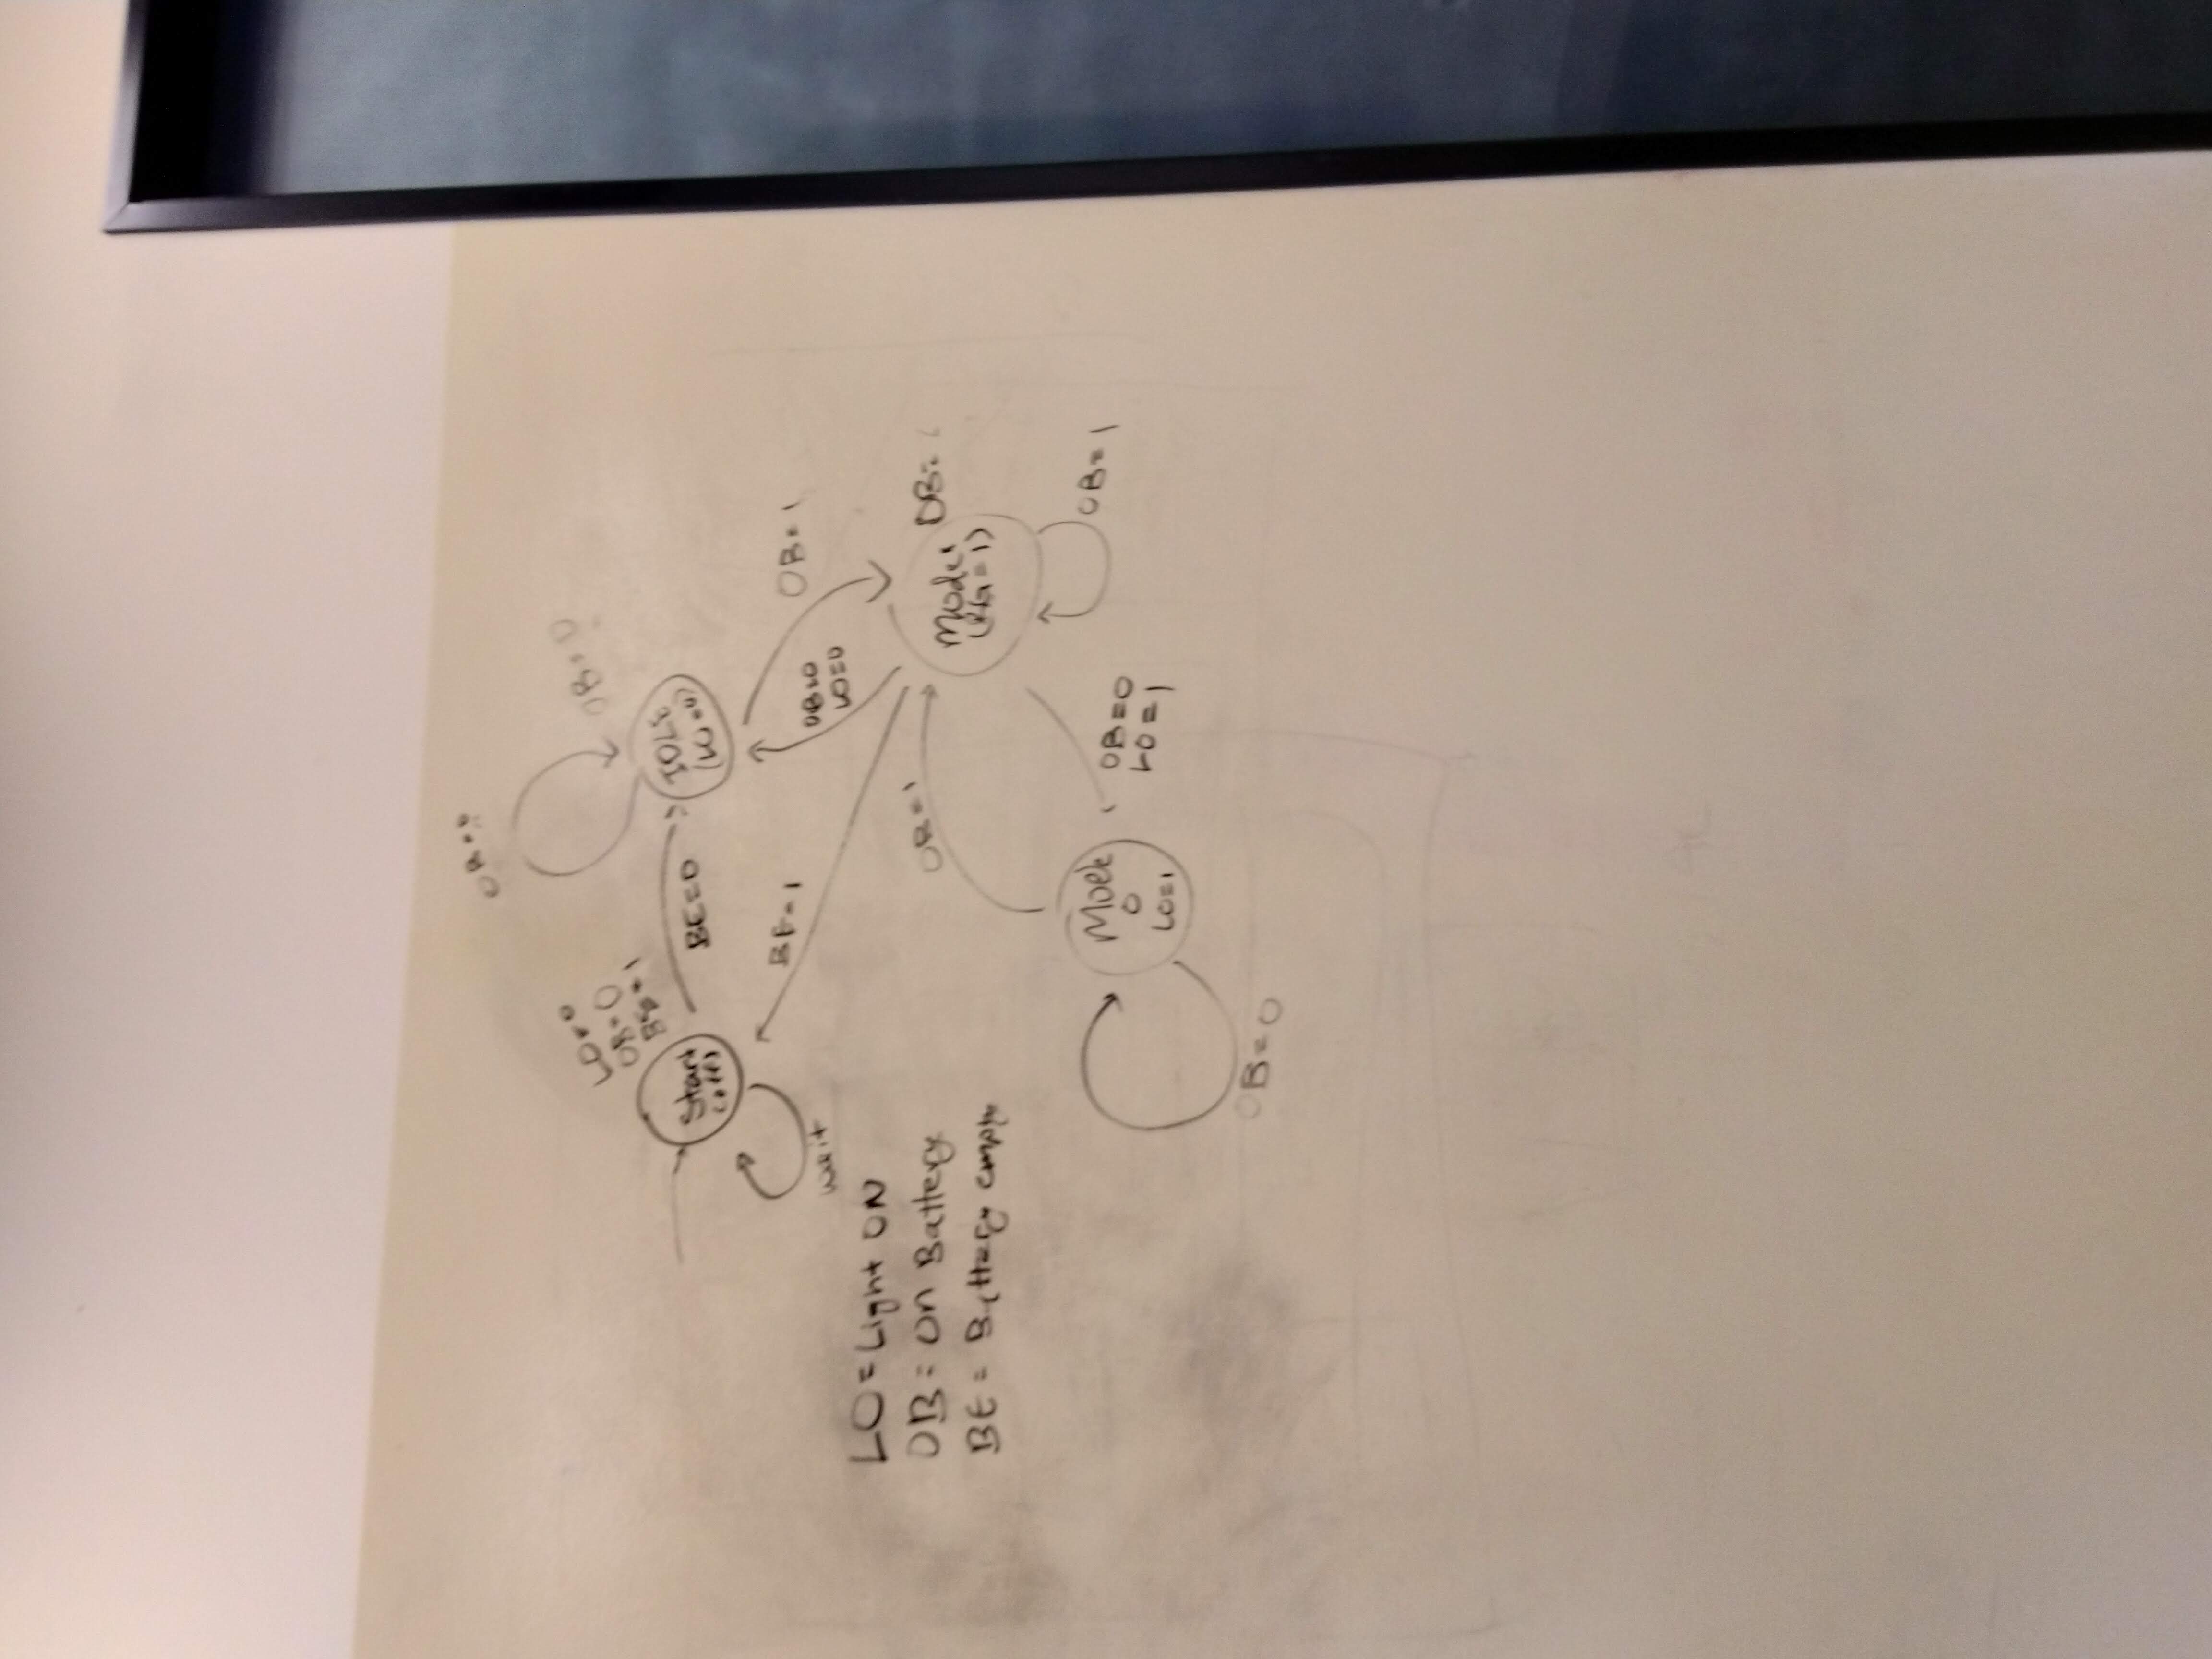 OB=0
LO=0
OB=0
BE=1
OB=0
Start
(off)
BE=0
IDLE
(LO=0)
wait
BE=1
OB=0
LO=0
OB=1
LO=Light ON
OB=On Battery
BE=Battery empty
OB=1
Mode1
OB=
OB=1
Mode
0
LO=1
OB=0
LO=1
OB=0